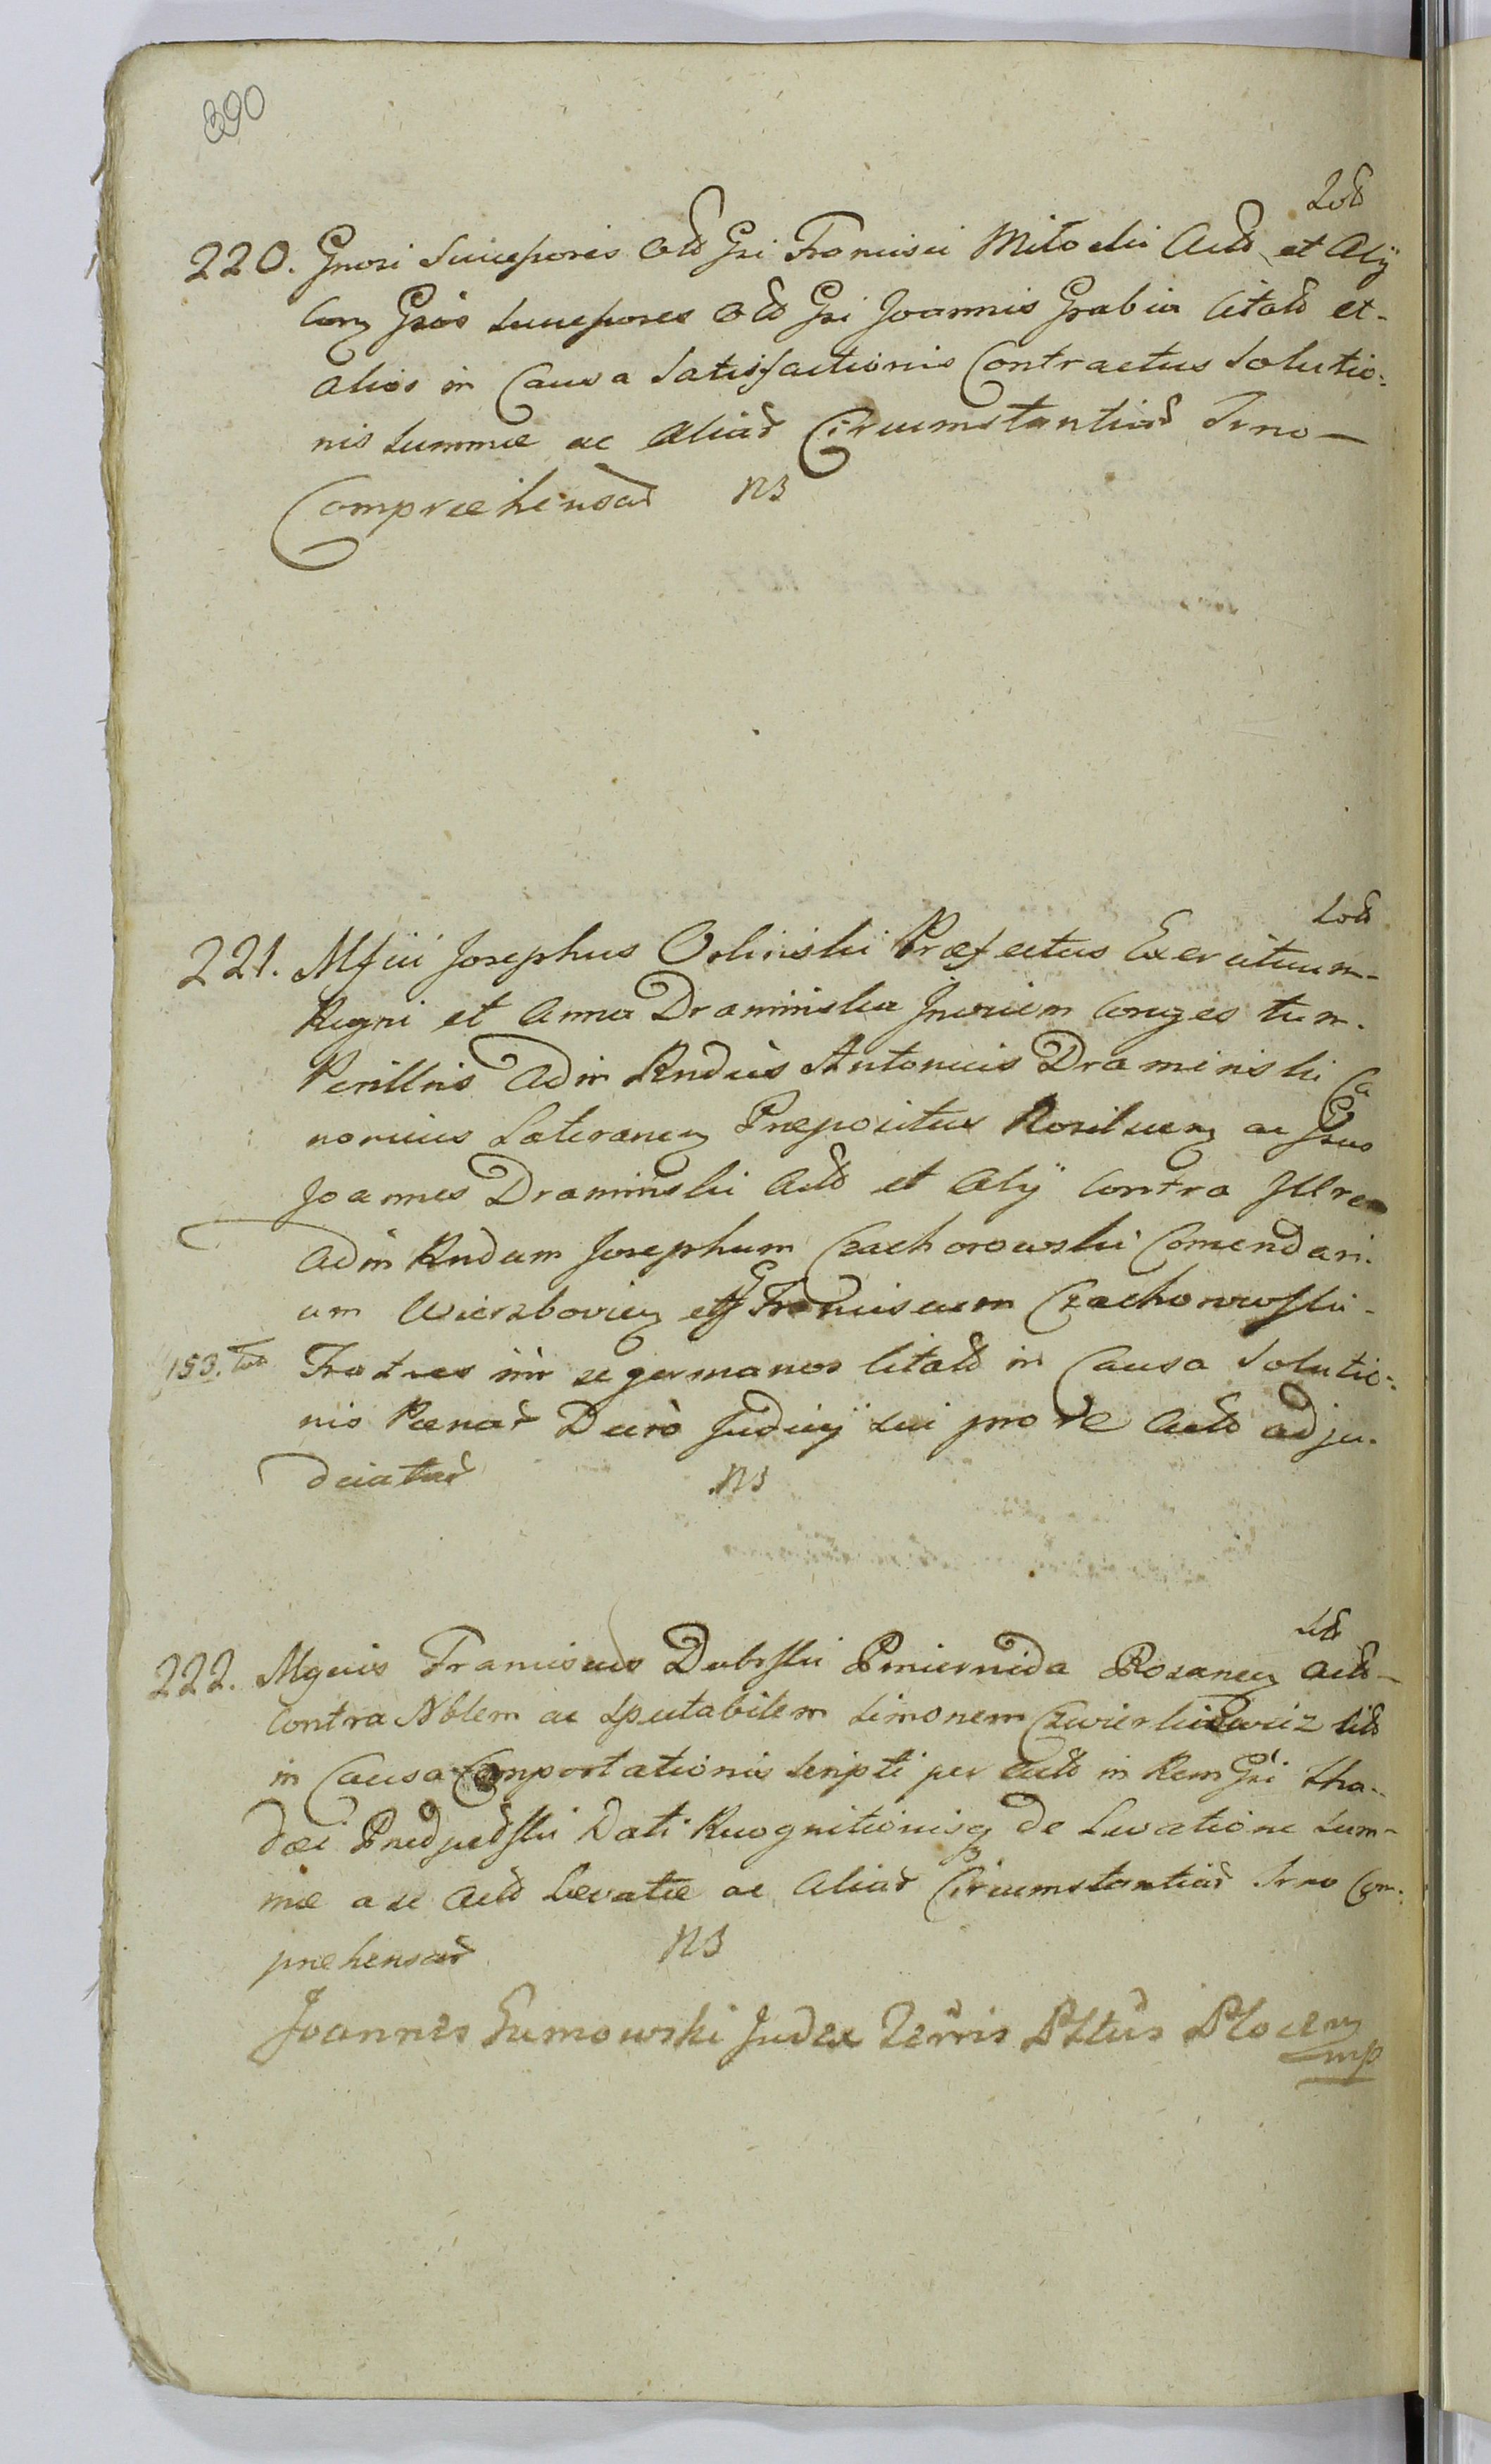 390
220. Gnosi Successores Gsi Francisci Milocki Actō et Alij
Con Gsos Successores Gsi Joannis Grabia Citatō et-
alios in Causa Satisfactionis Contractus Solutio-
nis Summæ ac aliar Circumstantiar Trno-
Compræhensar NB
221. Mfici Josephus Orlinski Præfectus Exercituum-
Regni et Anna Draminska Conges tum.
Perillris Adm Rndus Antonius Draminski Ca
nonicus Lateranen Præpositus ac Gsus
Joannes Draminski Actō et Alij Contra Illrem
Adm Rndum Josephum Czachorowski Comendari-
um et G Franciscum Czachorowski-
153. Fratres inr se germanos Citatō in Causa Solutio-
nis Pænar Decrō Judicij sui pro re Actō adju-
dicatar NB
222. Mgcus Franciscus Dubski Pincernida Rozanen Actō-
Contra Nblem ac Spectabilem Simonem Czwierkiewicz Citō
in Causa Comportationis Scripti per Actō in Rem Gsi Tha-
dæi Dati Recognitionisq de Levatione Sum-
mæ a se Actō Levatæ ac Aliar Circumstantiar Trno Com-
prehensar NB
Joannes Sumowski Judex Terris Pttus Plocen
mp